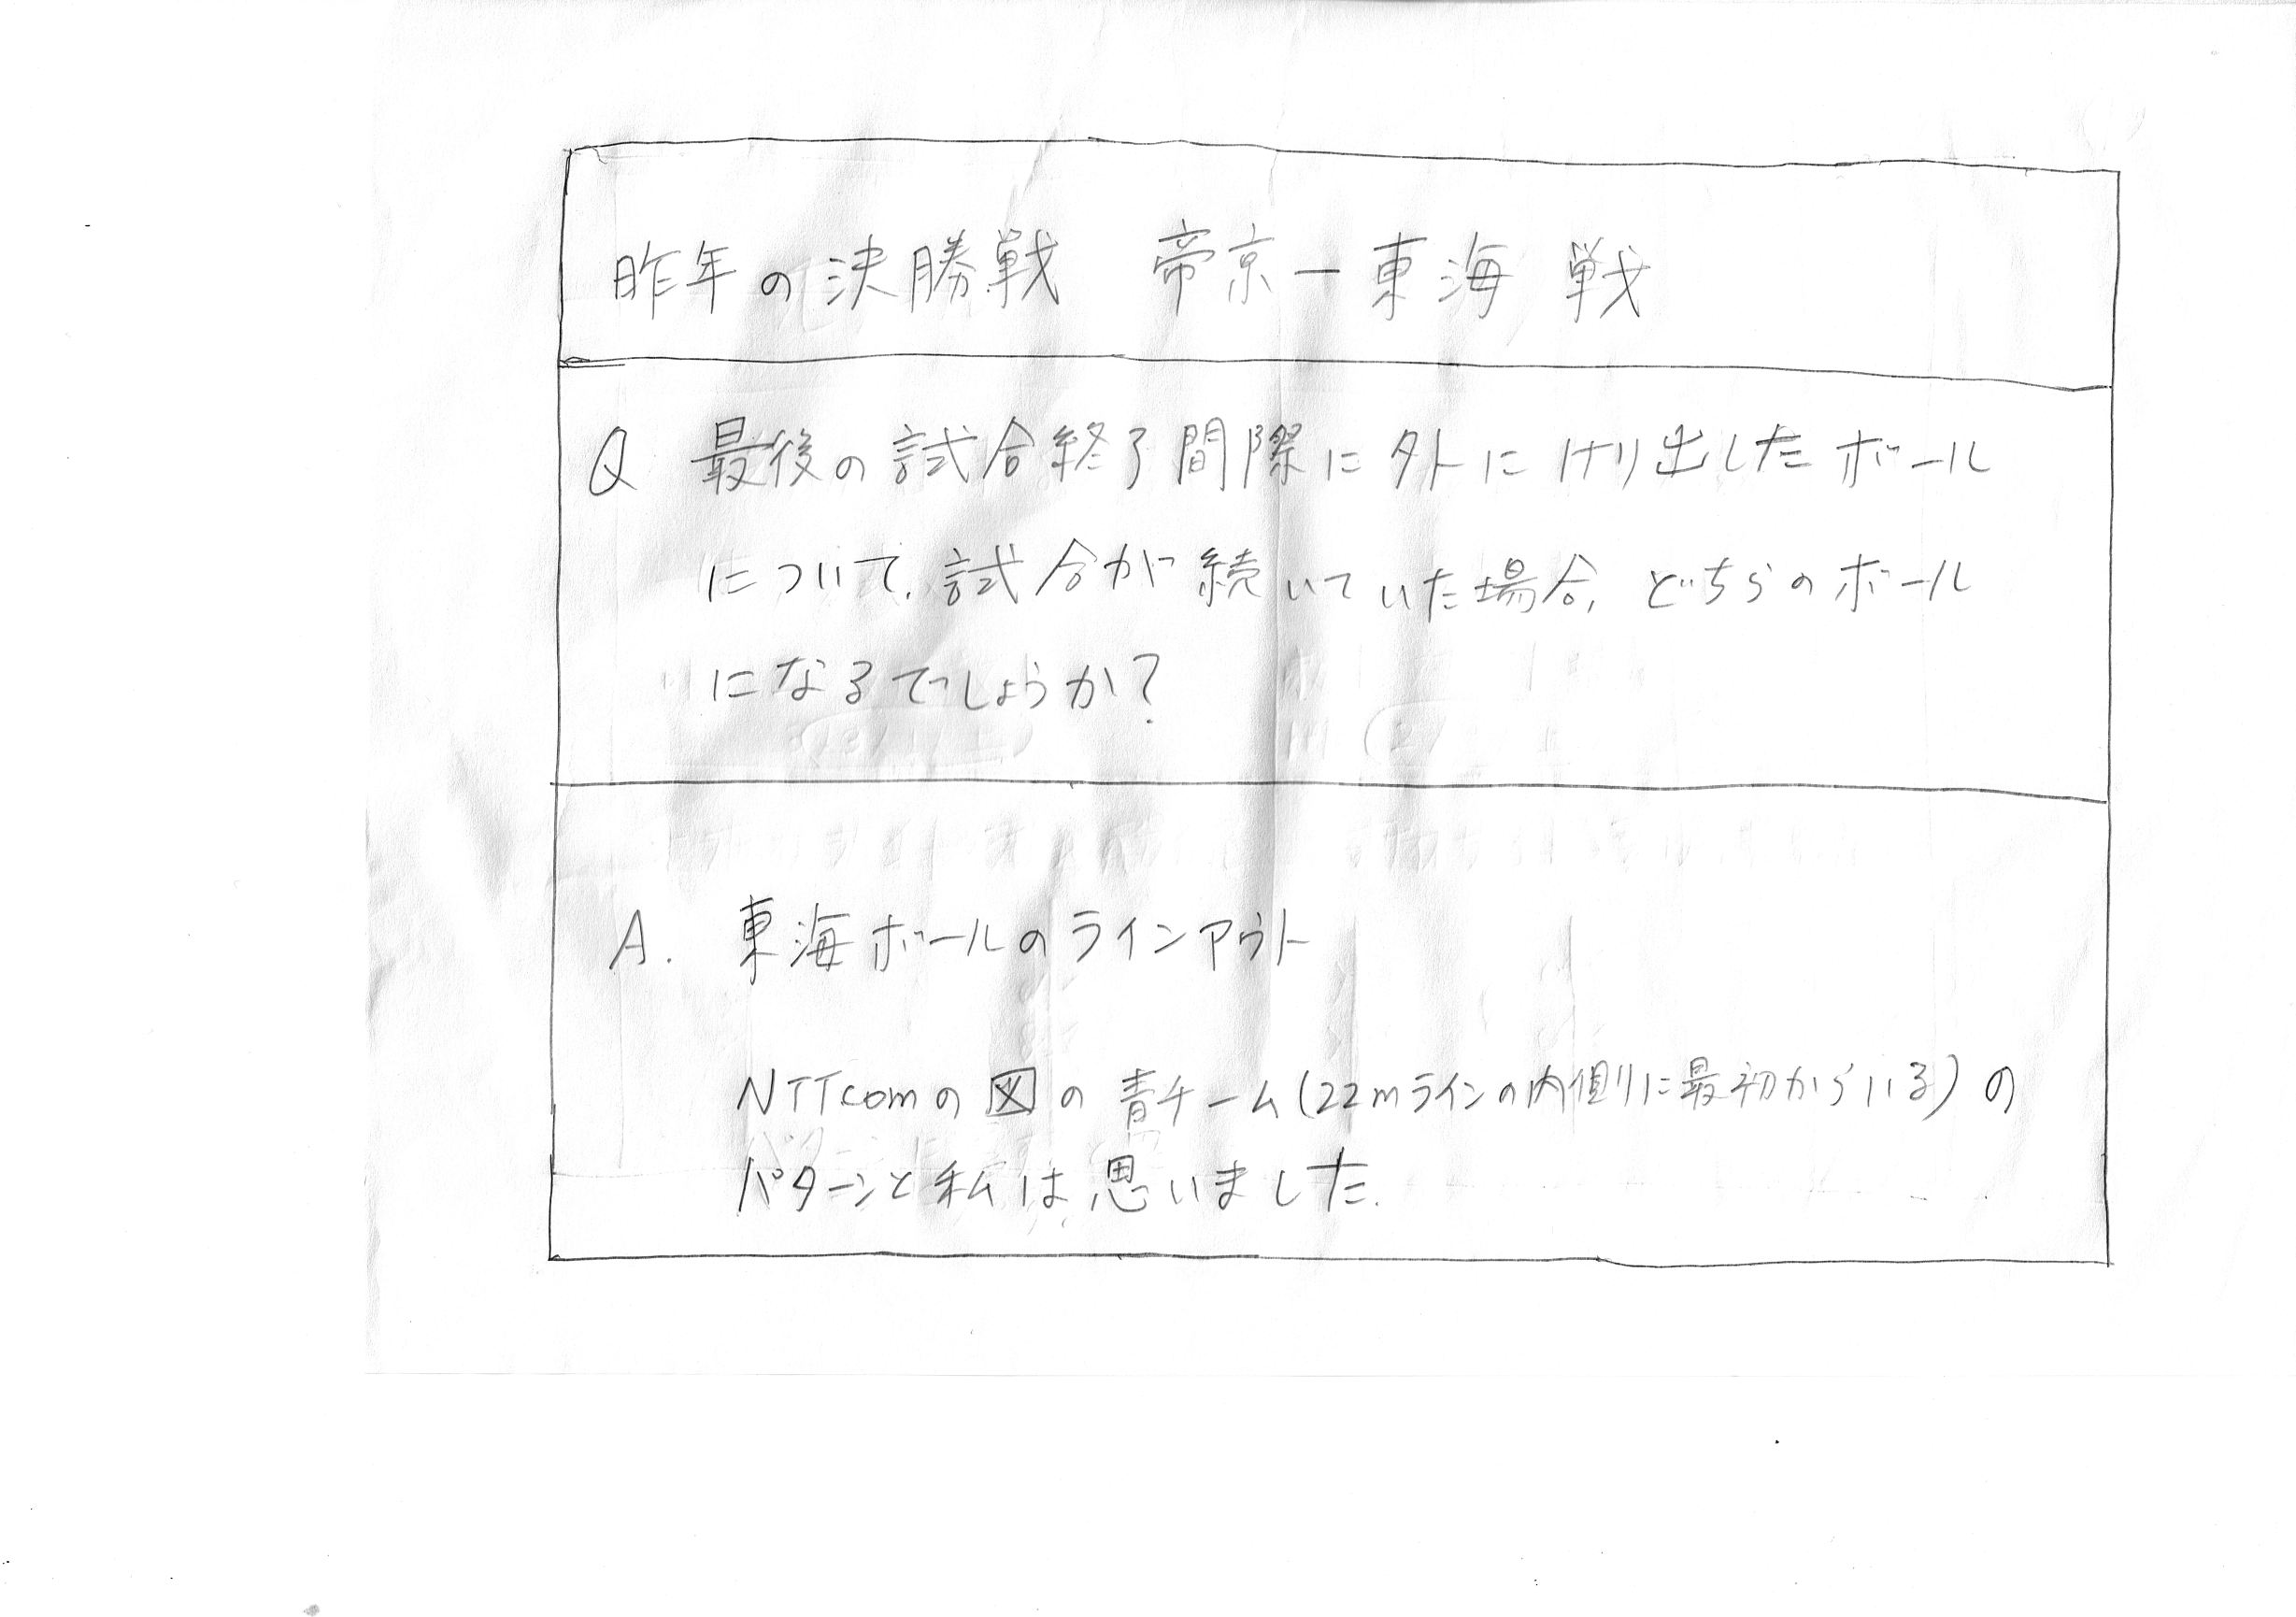 昨年の決勝戦　帝京ー東海戦
Q 最後の試合終了間際に外にけり出したボール
について、試合が続いていた場合、どちらのボール
になるでしょうか?
A. 東海ボールのラインアウト
NTTcomの図の青チーム(22mラインの内側に最初からいる)の
パターンと私は思いました。